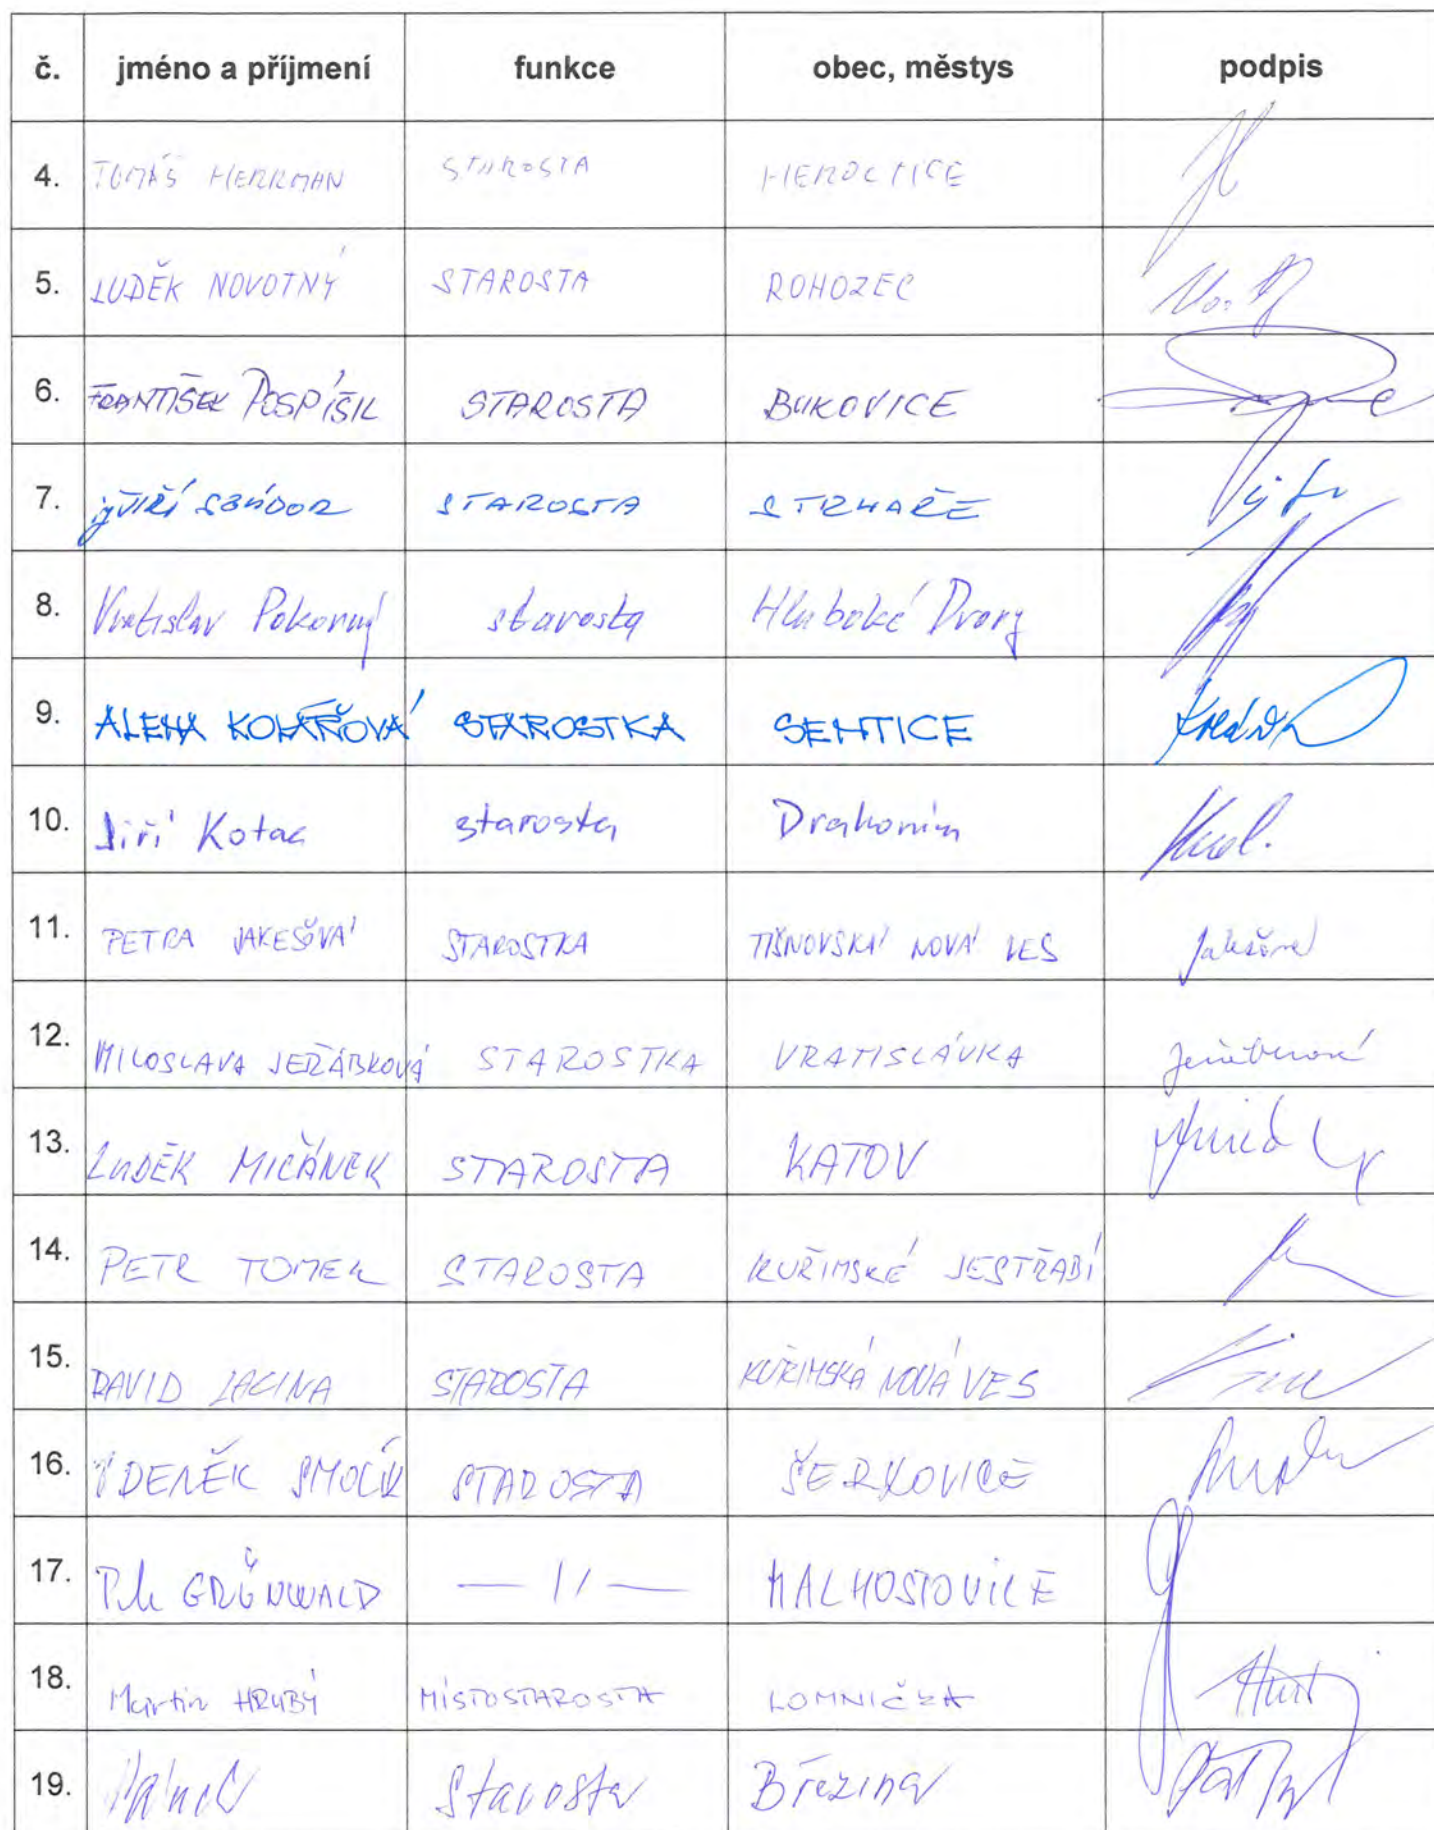 č. jméno a příjmení funkce obec, městys podpis
4. TOMÁŠ HERRMAN STAROSTA HEROLTICE
5. LUDĚK NOVOTNÝ STAROSTA ROHOZEC
6. FRANTIŠEK POSPÍŠIL STAROSTA BUKOVICE
7. JIŘÍ SÁNDOR STAROSTA STRHAŘE
8. Vratislav Pokorný starosta Hluboké Dvory
9. ALENA KOLÁŘOVÁ STAROSTKA SENTICE
10. Jiří Kotac starosta Drahonín
11. PETRA JAKEŠOVÁ STAROSTKA TIŠNOVSKÁ NOVÁ VES Jakešová
12. MILOSLAVA JEŘÁBKOVÁ STAROSTKA VRATISLÁVKA Jeřábková
13. LUDĚK MIČÁNEK STAROSTA KATOV
14. PETR TOMEK STAROSTA KUŘIMSKÉ JESTŘABÍ
15. DAVID LACINA STAROSTA KUŘIMSKÁ NOVÁ VES
16. ZDENĚK SMOLÍK STAROSTA ŠERKOVICE
17. GRÜNWALD — 11 — MALHOSTOVICE
18. Martin HRUBÝ MÍSTOSTAROSTA LOMNIČKA
19. Starosta Březina